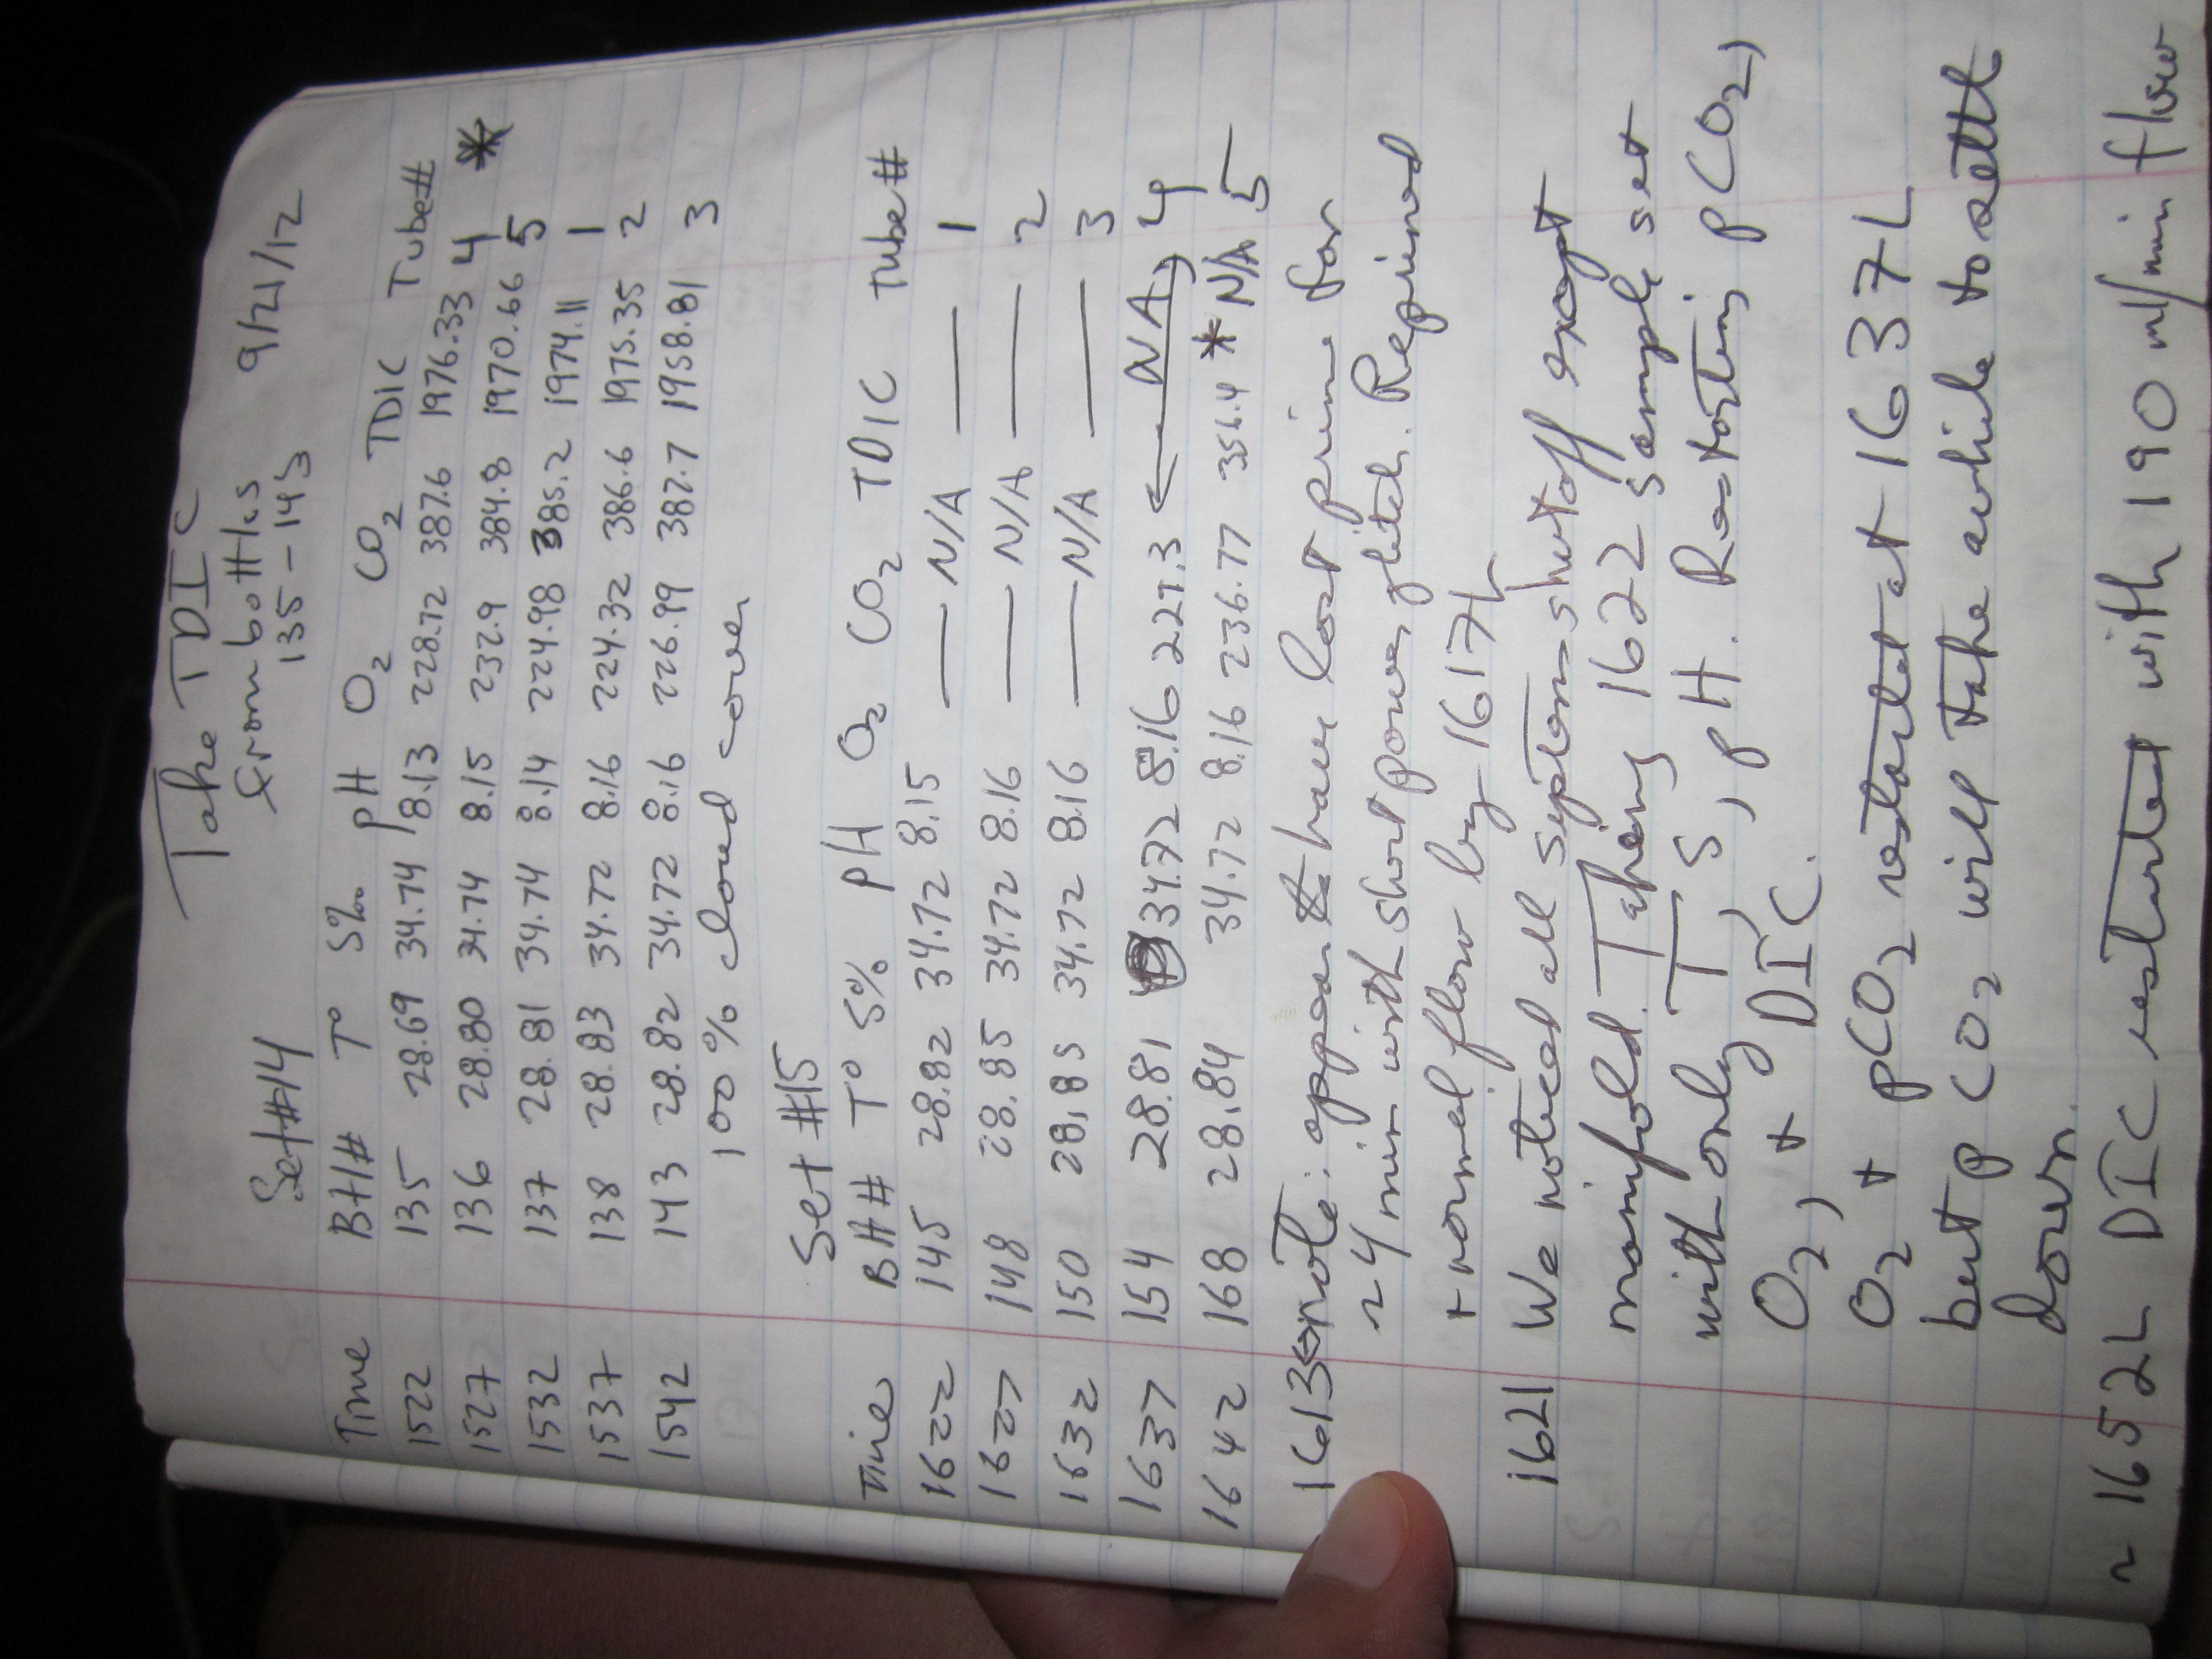 Take TDIC
from bottles
135-143
Set #14 9/21/12
Time BH# T° S‰ pH O2 CO2 TDIC Tube#
1522 135 28.69 34.74 8.13 228.72 387.6 1976.33 4 *
1527 136 28.80 34.74 8.15 232.9 384.8 1970.66 5
1532 137 28.81 34.74 8.14 224.98 385.2 1974.11 1
1537 138 28.83 34.72 8.16 224.32 386.6 1975.35 2
1542 143 28.82 34.72 8.16 226.99 387.7 1958.81 3
100% cloud cover
Set #15
Time BH# T° S% pH O2 CO2 TDIC Tube#
1622 145 28.82 34.72 8.15 — N/A — 1
1627 148 28.85 34.72 8.16 — N/A — 2
1632 150 28.85 34.72 8.16 — N/A — 3
1637 154 28.81 34.72 8.16 227.3 ← N/A → 4
1642 168 28.84 34.72 8.16 236.77 356.4 * N/A 5
1613 note: appear to have lost prime for
~4 min with short power glitch. Reprimed
+ normal flow by 1617L
1621 We noticed all systems shut off except
manifold. Taking 1622 sample set
with only T, S, pH. Restarting pCO2,
O2, + DIC.
O2 + pCO2 restarted at 1637L
but pCO2 will take awhile to settle
down.
~ 1652L DIC restarted with 190 ml/min flow